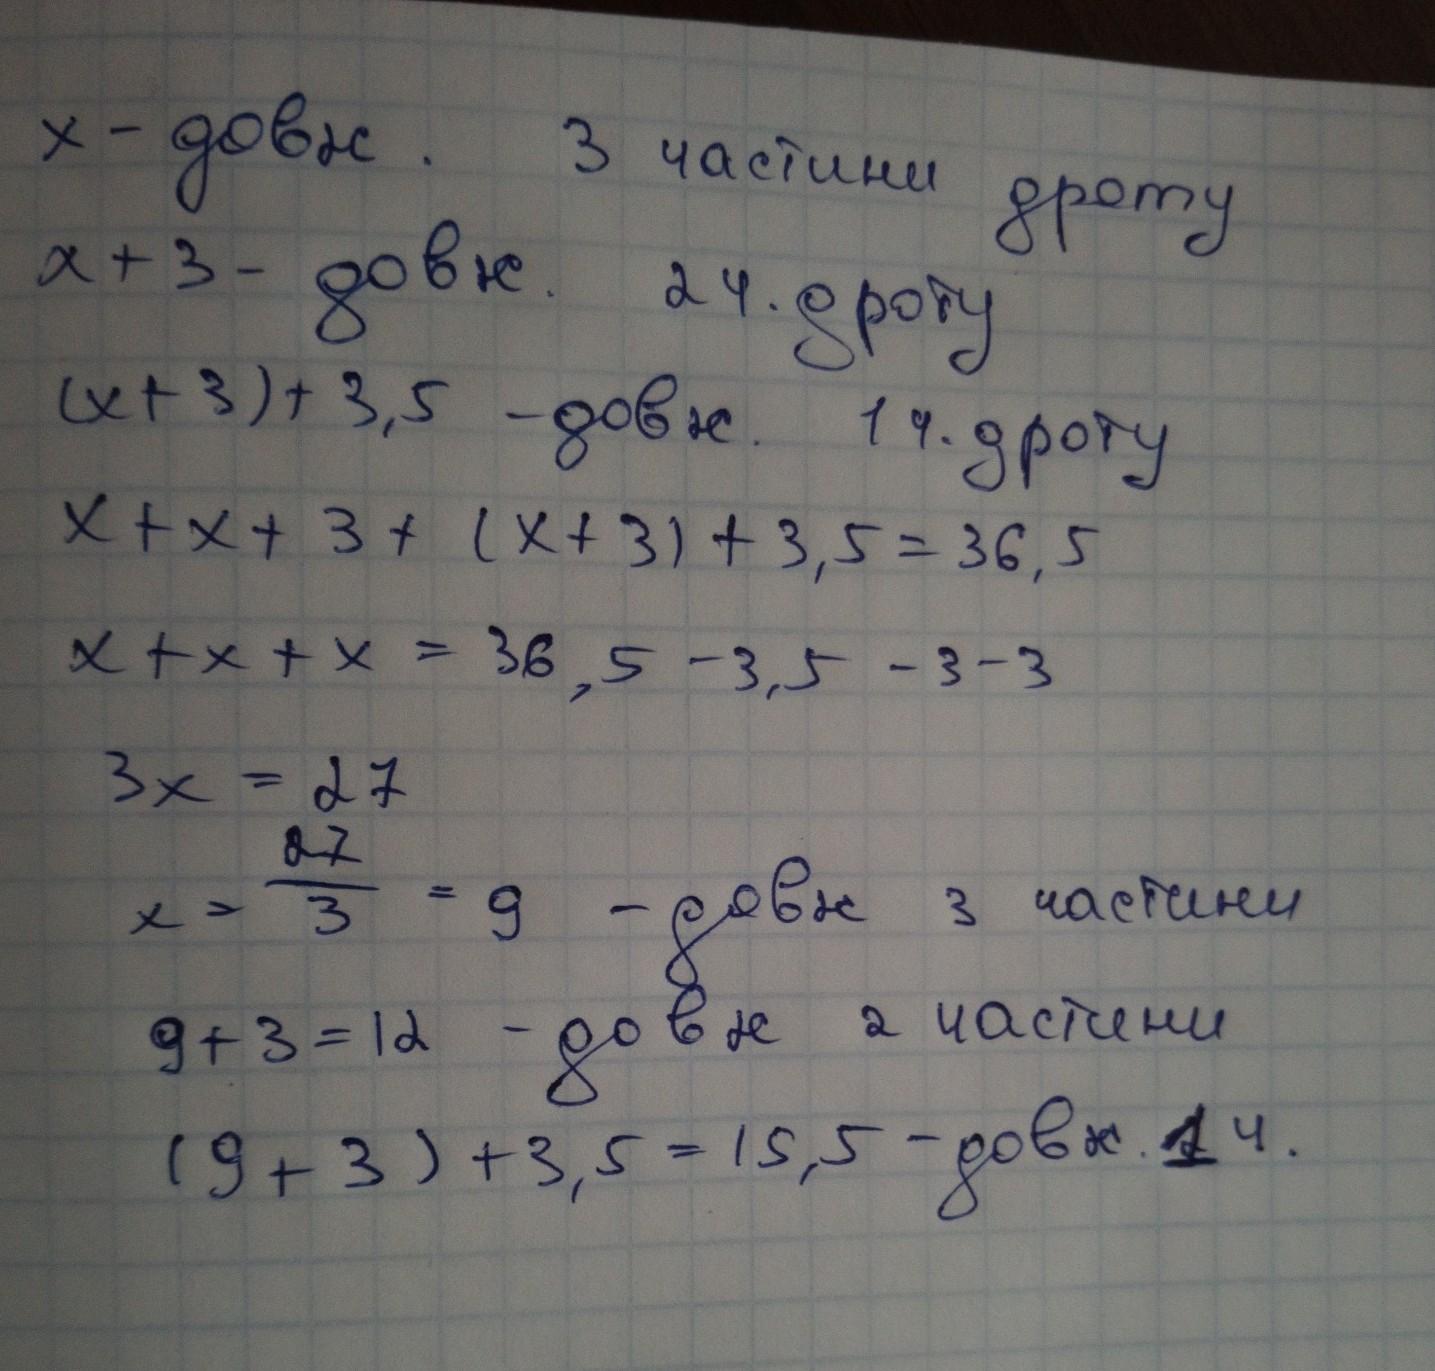 x - довж. 3 частини дроту
x + 3 - довж. 2 ч. дроту
(x + 3) + 3,5 - довж. 1 ч. дроту
x + x + 3 + (x + 3) + 3,5 = 36,5
x + x + x = 36,5 - 3,5 - 3 - 3
3x = 27
x = 27/3 = 9 - довж 3 частини
9 + 3 = 12 - довж 2 частини
(9 + 3) + 3,5 = 15,5 - довж. 1 ч.